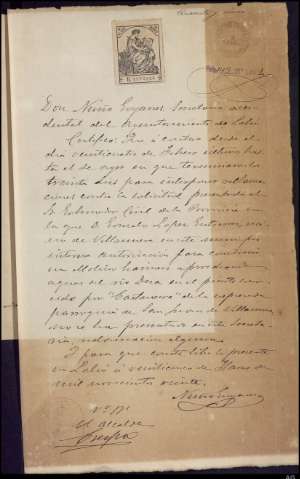 Don Nuño Goyanes Secretario acci-
dental del Ayuntamiento de Lalín
Certifico: Que á contar desde el
día veinticuatro de Febrero último has-
ta el de ayer en que terminaron los
treinta días para interponer reclama-
ciones contra la solicitud presentada al
Sr Gobernador Civil de la Provincia en
la que D. Gonzalo López Gutierrez, veci-
no de Villanueva en este municipio
interesa autorización para construir
un Molino harinero aprovechando
aguas del río Deza en el punto cono-
cido por
parroquia de San Juan de Villanueva
no se ha presentado en esta Secreta-
ría, reclamación alguna.
Y para que conste libro la presente
en Lalín á veinticinco de Marzo de
mil novecientos veinte.
Nuño Goyanes
Vº Bº
El Alcalde